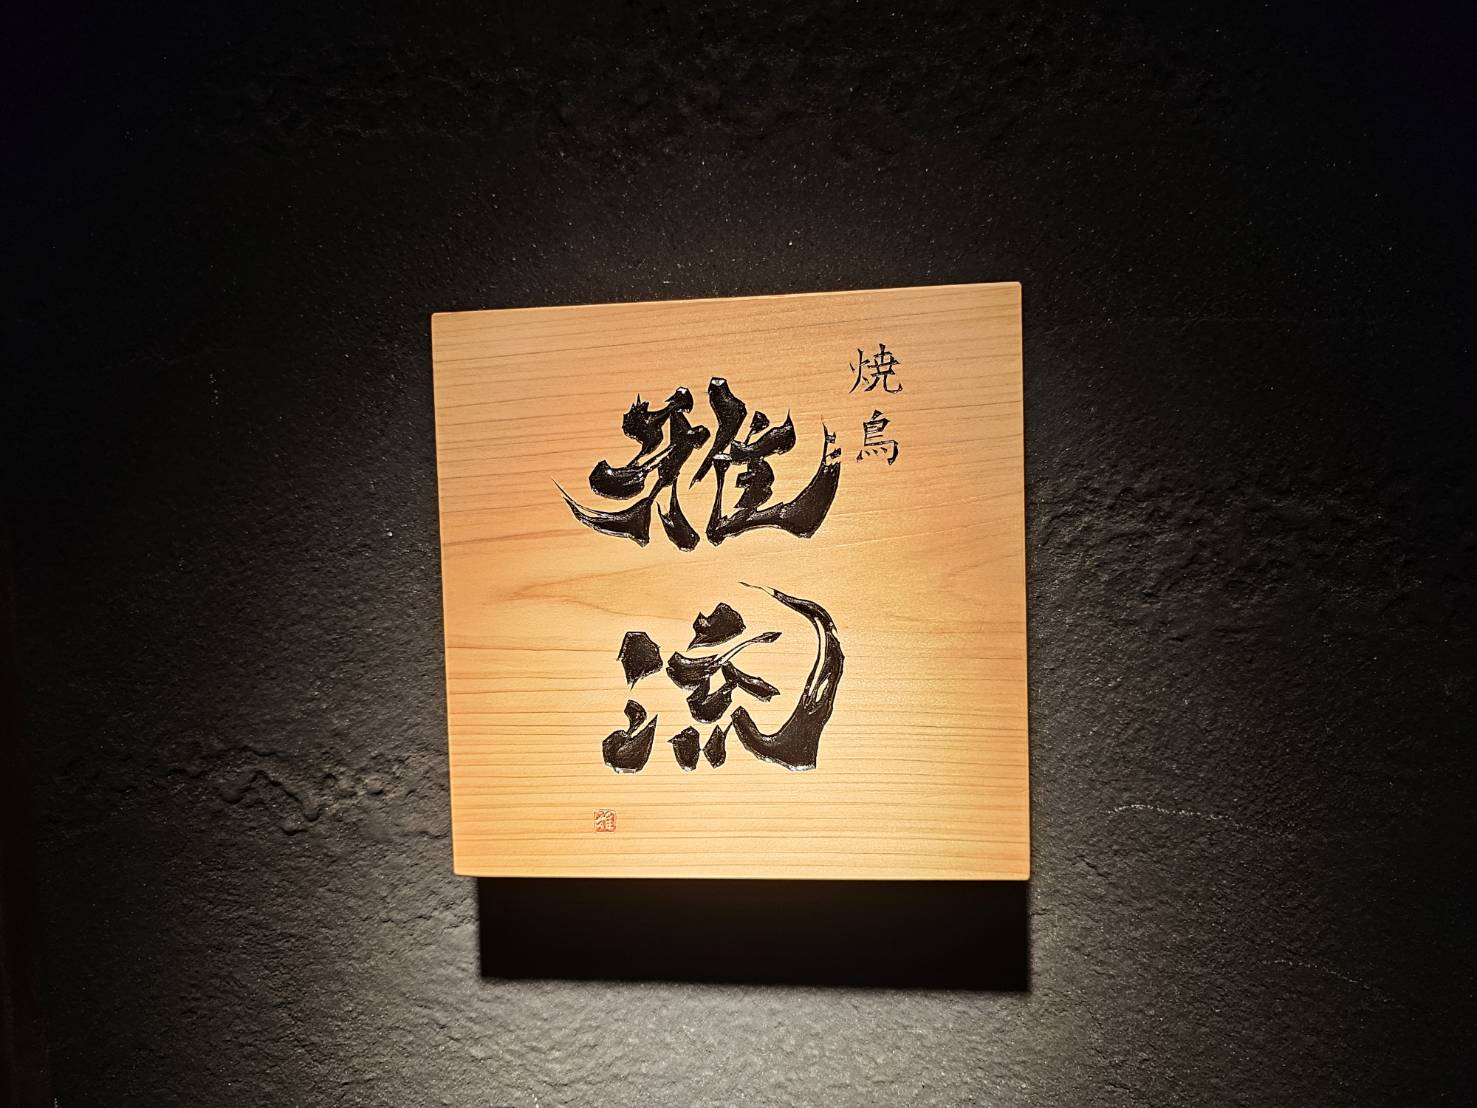 焼鳥
雅流
雅